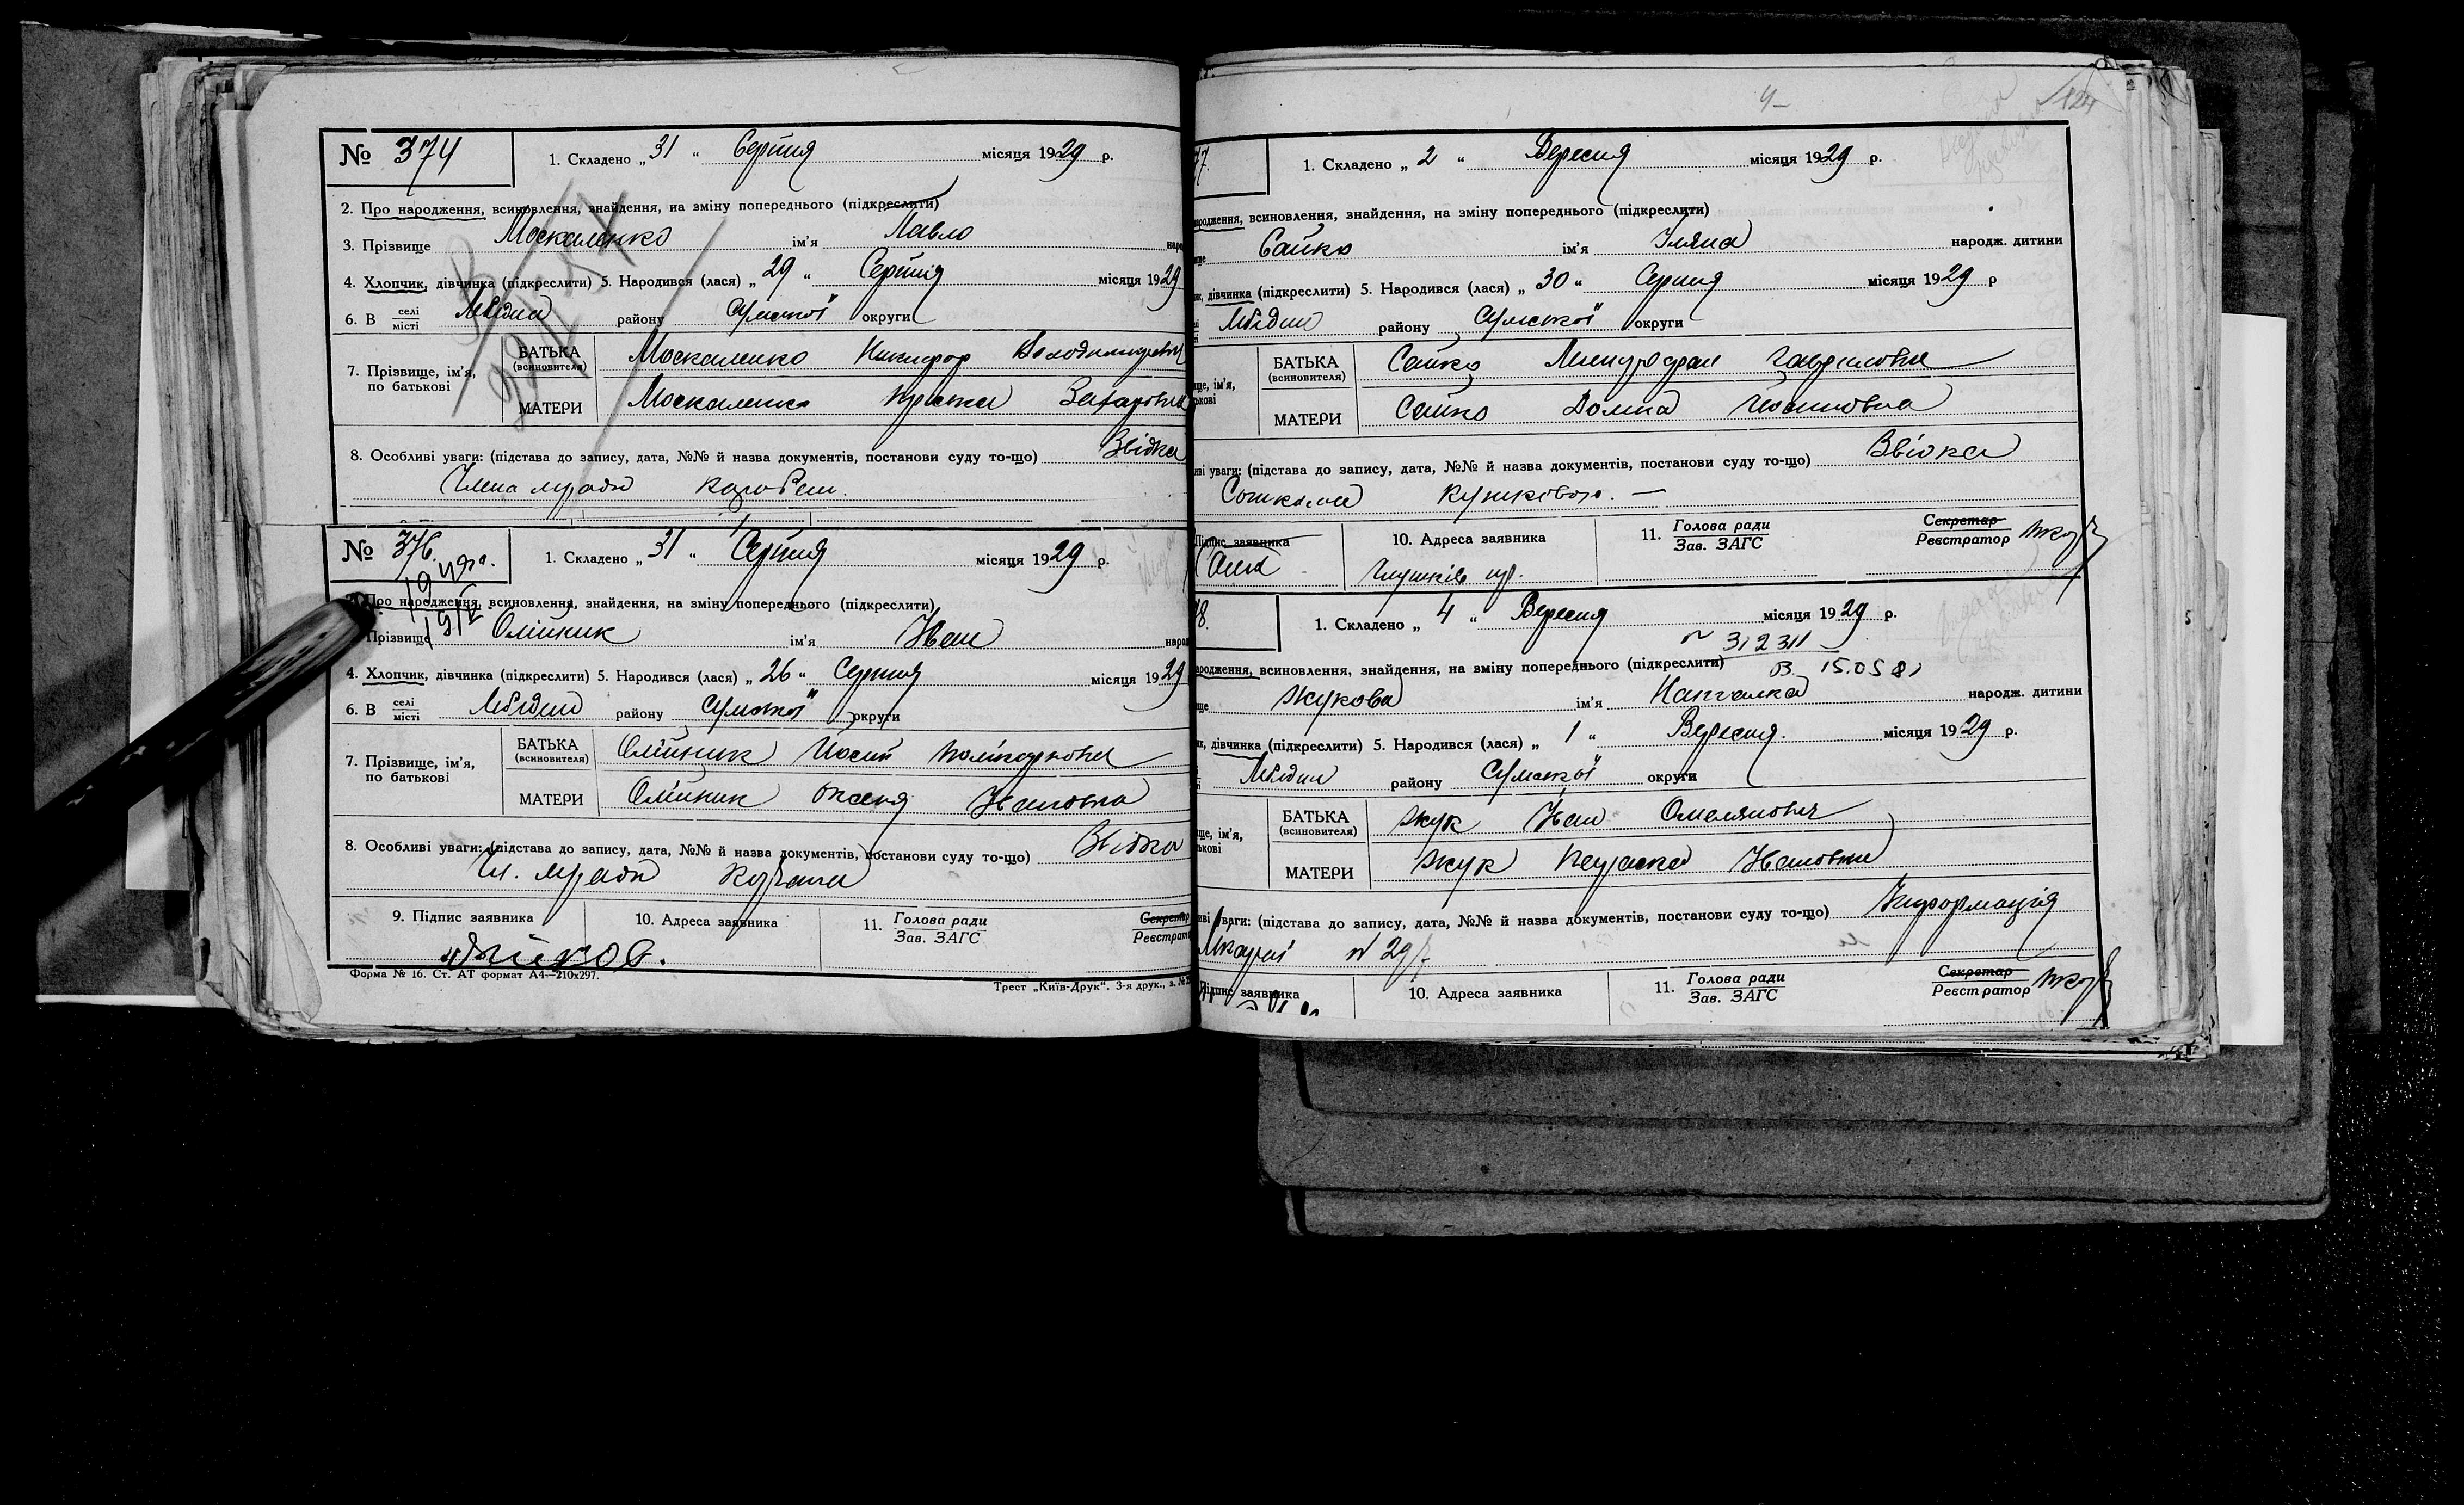 № 374
1. Складено „31“ Серпня місяця 1929 р.
2. Про народження, всиновлення, знайдення, на зміну попереднього (підкреслити)
3. Прізвище Москаленко ім'я Павло
4. Хлопчик, дівчинка (підкреслити) 5. Народився (лася) „29“ Серпня місяця 1929
6. В селі місті Лебедин району Сумської округи
7. Прізвище, ім'я, по батькові
БАТЬКА (всиновителя) Москаленко Никифор Володимирович
МАТЕРИ Москаленко Захаровна
8. Особливі уваги: (підстава до запису, дата, №№ й назва документів, постанови суду то-що) Звідка
Члена м/ради
№ 376.
1. Складено „31“ Серпня місяця 1929 р.
2. Про народження, всиновлення, знайдення, на зміну попереднього (підкреслити)
Прізвище Олійник ім'я Иван
4. Хлопчик, дівчинка (підкреслити) 5. Народився (лася) „26“ Серпня місяця 1929
6. В селі місті Лебедин району Сумської округи
7. Прізвище, ім'я, по батькові
БАТЬКА (всиновителя) Олійник Йосип Полікарпович
МАТЕРИ Олійник Оксеня Ивановна
8. Особливі уваги: (підстава до запису, дата, №№ й назва документів, постанови суду то-що) Звідка
Чл. м/ради
9. Підпис заявника 10. Адреса заявника 11. Голова ради Зав. ЗАГС Секретар Реєстрато
Форма № 16. Ст. АТ формат А4—210х297.
Трест „Київ-Друк“. 3-я друк., з. №
124
77.
1. Складено „2“ Вересня місяця 1929 р.
ародження, всиновлення, знайдення, на зміну попереднього (підкреслити)
Сайко ім'я Уляна народж. дитини
дівчинка (підкреслити) 5. Народився (лася) „30“ Серпня місяця 1929 р
Лебедин району Сумської округи
БАТЬКА (всиновителя) Сайко Митрофан Гаврилович
МАТЕРИ Сайко Домна
уваги: (підстава до запису, дата, №№ й назва документів, постанови суду то-що) Звідка
Підпис заявника 10. Адреса заявника 11. Голова ради Зав. ЗАГС Секретар Реєстратор
78.
1. Складено „4“ Вересня місяця 1929 р.
№ 312311
ародження, всиновлення, знайдення, на зміну попереднього (підкреслити)
В 15.05 81
Жукова ім'я Наталка народж. дитини
дівчинка (підкреслити) 5. Народився (лася) „1“ Вересня. місяця 1929 р.
Лебедин району Сумської округи
БАТЬКА (всиновителя) Жук Иван Омелянович
МАТЕРИ Жук Параска Ивановна
уваги: (підстава до запису, дата, №№ й назва документів, постанови суду то-що) Информація
№ 29
Підпис заявника 10. Адреса заявника 11. Голова ради Зав. ЗАГС Секретар Реєстратор